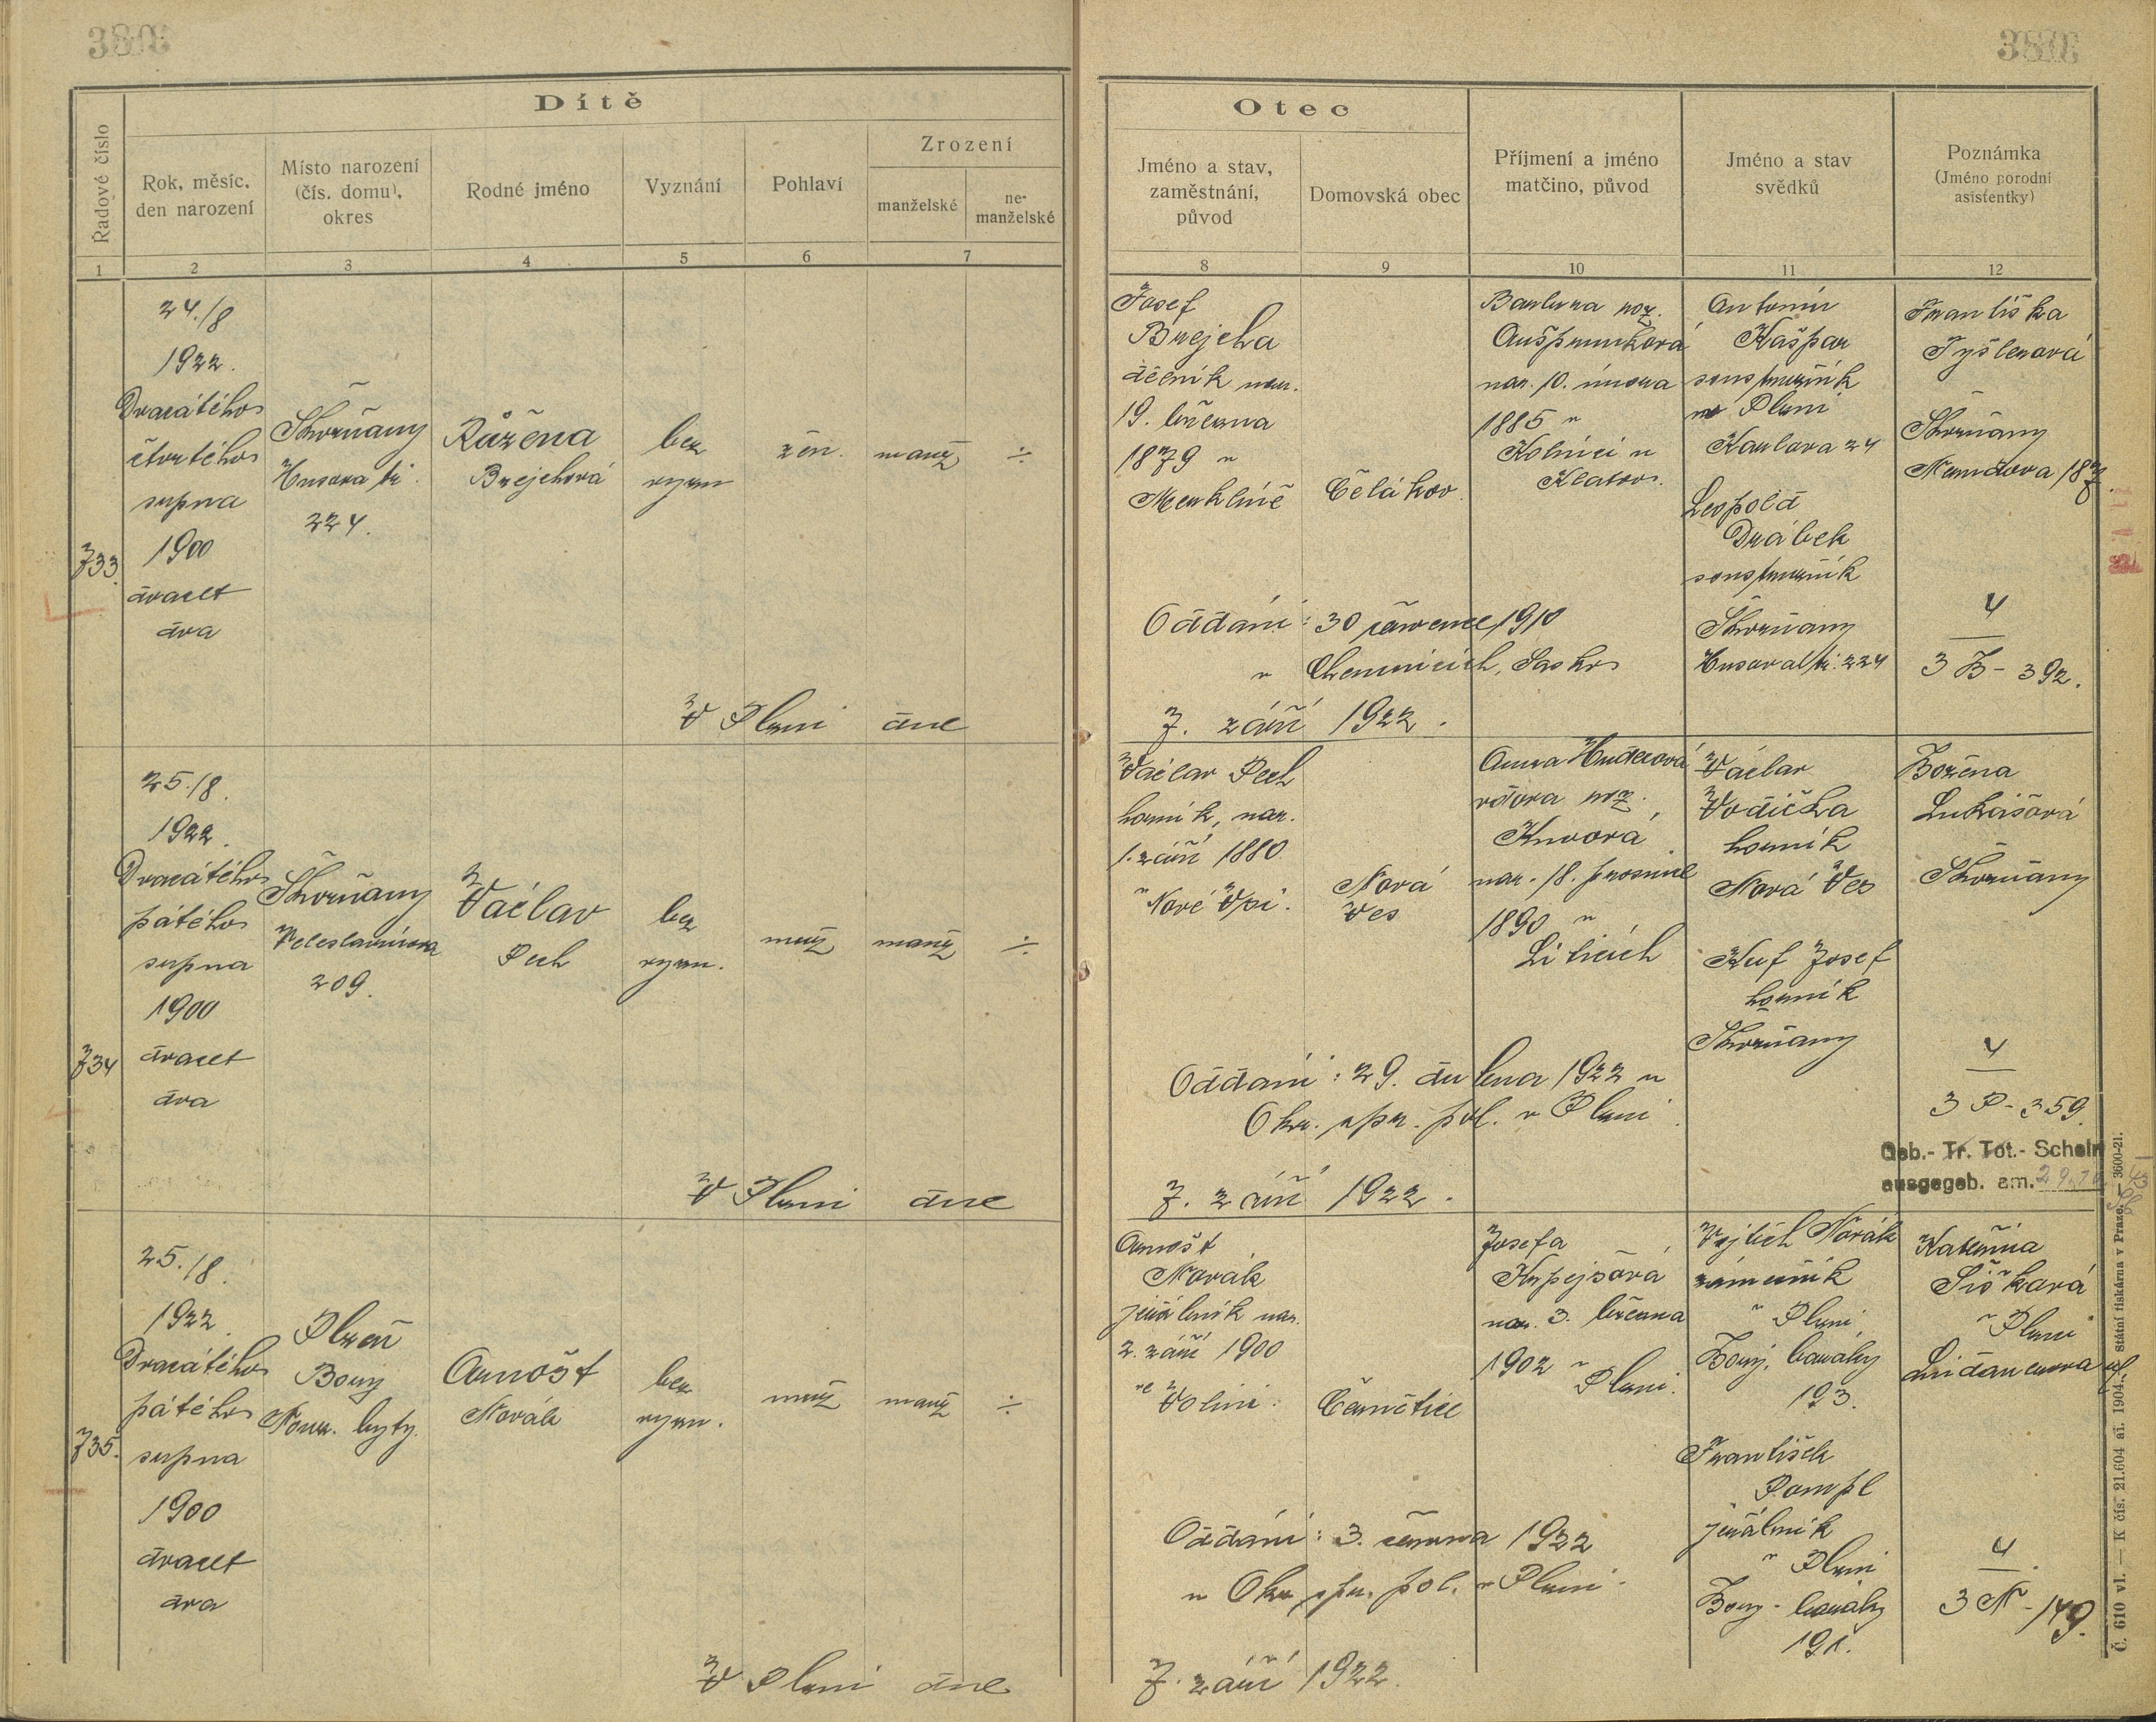 Dítě
Řadové číslo
Rok, měsíc, den narození
Místo narození (čís. domu), okres
Rodné jméno
Vyznání
Pohlaví
Zrození
manželské
ne-
manželské
1 2 3 4 5 6 7
Otec
Jméno a stav, zaměstnání, původ
Domovská obec
Příjmení a jméno matčino, původ
Jméno a stav svědků
Poznámka
(Jméno porodní asistentky)
8 9 10 11 12
733.
24./8
1922.
Dvacátého
čtvrtého
srpna
1900
dvacet
dva
Škvrňany
Husova tř.
224.
Růžena
Brejchová
bez
vyzn
žen.
manž
÷
Josef
Brejcha
dělník nar.
19. března
1879 v
Merklíně
Čelákov.
Barbora roz.
nar. 10. února
1885 v
Kolinci u
Klatov.
Antonín
Kašpar
soustružník
v Plzni
Karlova 24
Leopold
Drábek
soustružník
Škvrňany
Husova tř. 224
Františka
Tyšlerová
Škvrňany
187.
4
3 B - 392.
Oddáni: 30 července 1910
v Chemnicích, Sasko
V Plzni dne
7. září 1922.
734
25./8.
1922.
Dvacátého
pátého
srpna
1900
dvacet
dva
Škvrňany
Veleslavínova
209.
Václav
Pech
bez
vyzn.
muž
manž
÷
Václav Pech
horník, nar.
1. září 1880
v Nové Vsi.
Nová
Ves
Anna Hudecová
vdova roz.
nar. 18. prosince
1890 v
Liticích
Václav
Vodička
horník
Nová Ves
Josef
horník
Škvrňany
Božena
Lukášová
Škvrňany
4
3 P - 359.
Geb.- Tr. Tot.- Schein
ausgegeb. am.
Oddáni: 29. dubna 1922 u
Okr. spr. pol. v Plzni.
V Plzni dne
7. září 1922.
735.
25./8.
1922.
Dvacátého
pátého
srpna
1900
dvacet
dva
Plzeň
Bory
Nouz. byty.
Arnošt
Novák
bez
vyzn.
muž
manž
÷
Arnošt
Novák
jeřábník nar.
2. září 1900
ve Volini.
Čerňetice
Josefa
nar. 3. března
1902 v
Plzni.
Vojtěch Novák
zámečník
v Plzni
Bory, baráky
193.
František
Pompl
jeřábník
v Plzni
Bory - baráky
191.
Kateřina
Šišková
v Plzni
4
3 N - 149.
Oddáni: 3. června 1922
u Okr. spr. pol. v Plzni.
V Plzni dne
7. září 1922.
Č. 610 vl. — K čís. 21.604 ai. 1904. státní tiskárna v Praze. — 3600-21.